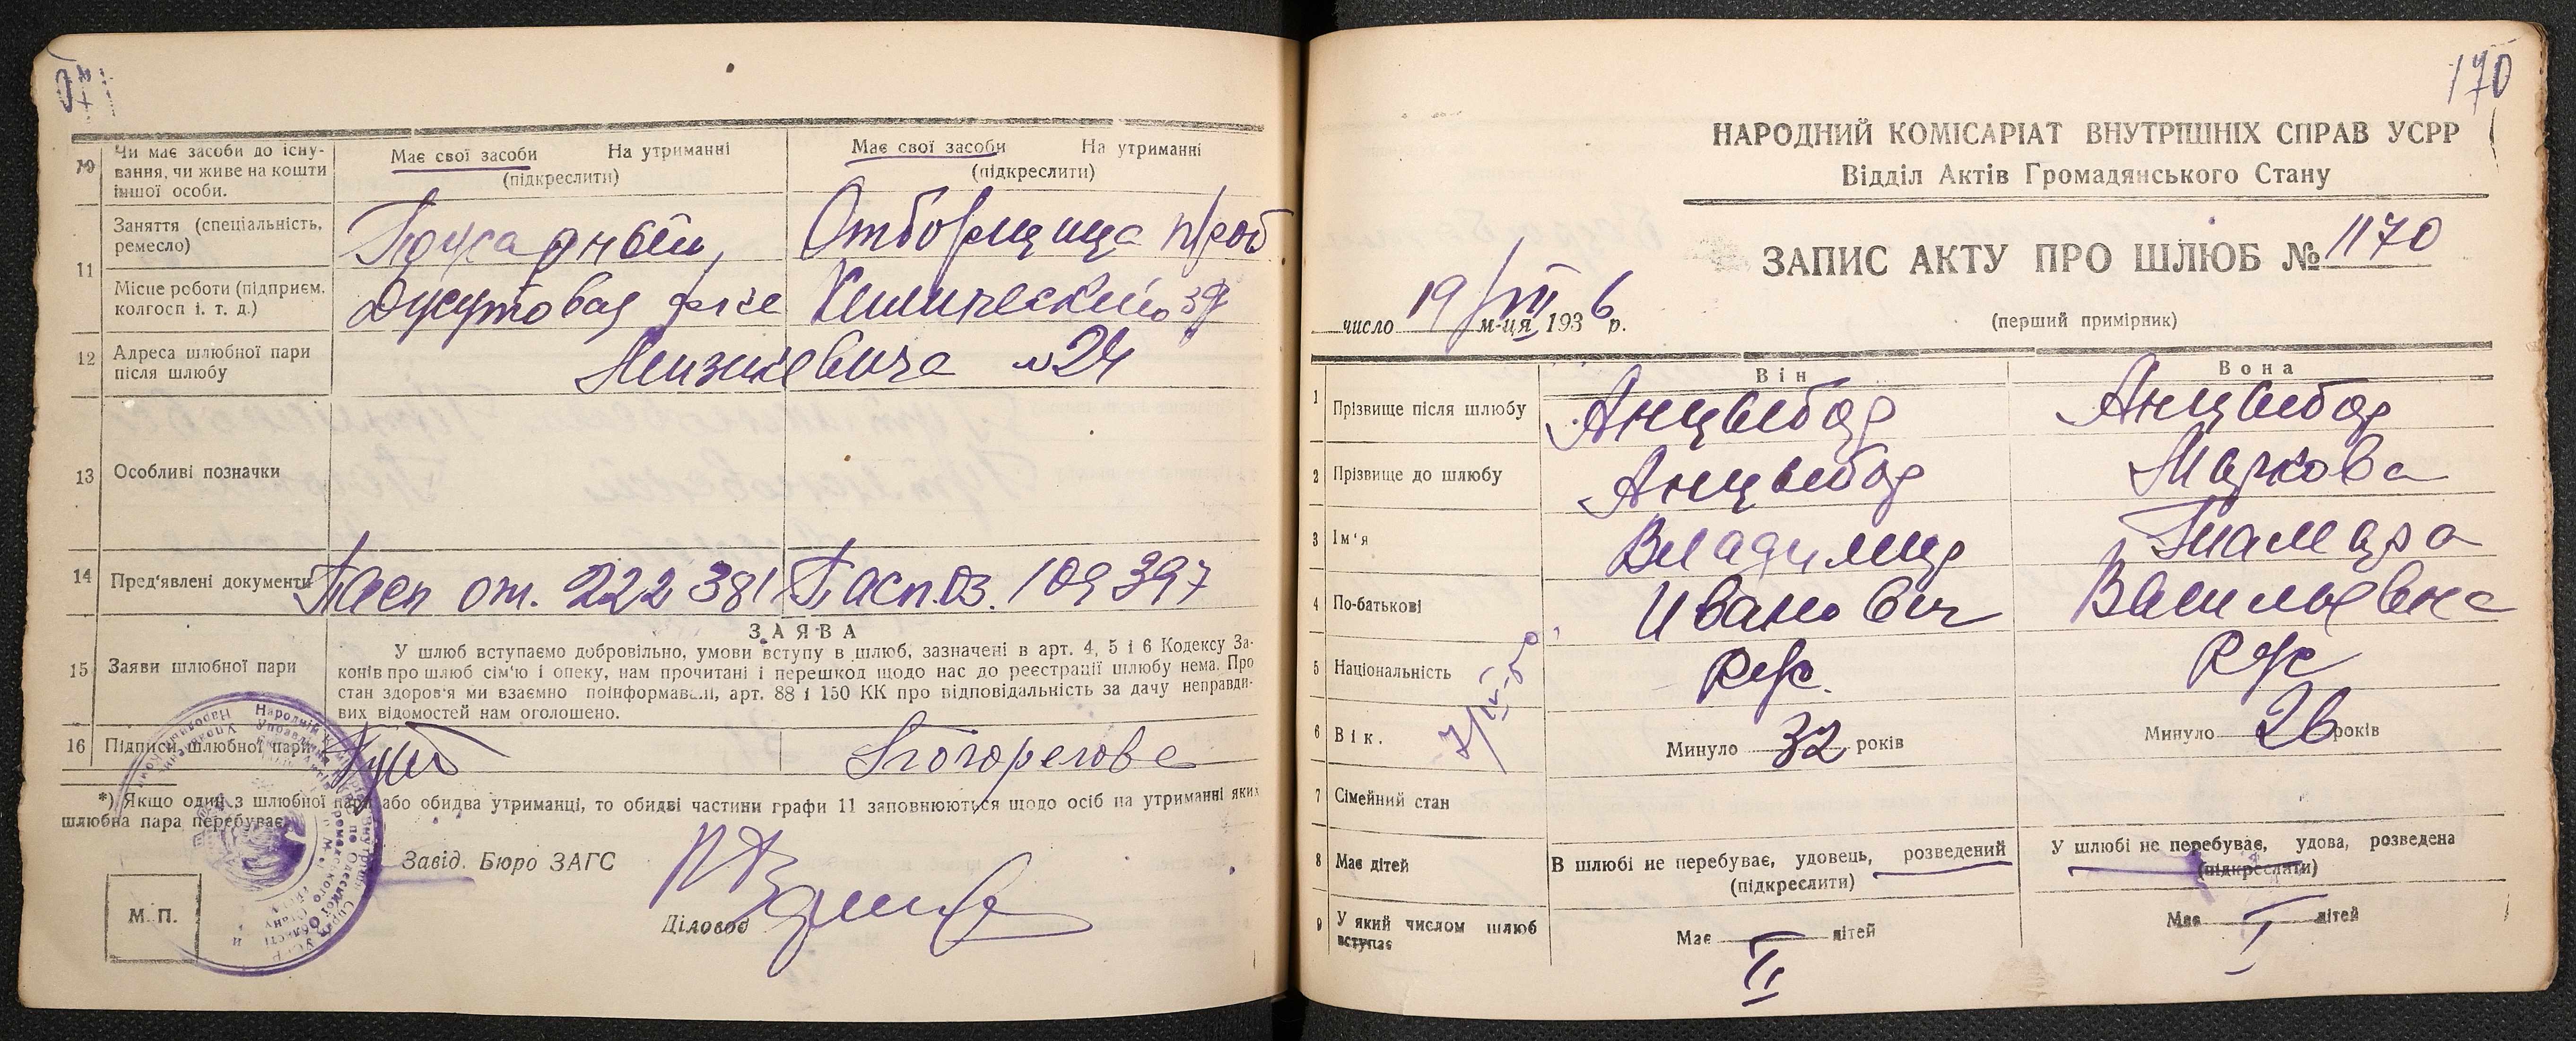 10 Чи має засоби до існу-
вання, чи живе на кошти
іншої особи.
Має свої засоби На утриманні
(підкреслити)
Має свої засоби На утриманні
(підкреслити)
11 Заняття (спеціальність,
ремесло)
Пожарный,
Отборщица проб
Місце роботи (підприєм.
колгосп і. т. д.)
Джутовая ф-ке
Химический з-д
12 Адреса шлюбної пари
після шлюбу
Мизикевича № 24
13 Особливі позначки
14 Пред'явлені документи
Пасп от. 222381
Пасп. оз. 109397
15 Заяви шлюбної пари
ЗАЯВА
У шлюб вступаємо добровільно, умови вступу в шлюб, зазначені в арт. 4, 5 і 6 Кодексу За-
конів про шлюб сім'ю і опеку, нам прочитані і перешкод щодо нас до реєстрації шлюбу нема. Про
стан здоров'я ми взаємно поінформавалі, арт. 88 і 150 КК про відповідальність за дачу неправди-
вих відомостей нам оголошено.
16 Підписи шлюбної пари
*) Якщо один з шлюбної пари або обидва утриманці, то обидві частини графи 11 заповнюються щодо осіб на утриманні яких
шлюбна пара перебуває.
Завід. Бюро ЗАГС
М. П.
Діловод
170
НАРОДНИЙ КОМІСАРІАТ ВНУТРІШНІХ СПРАВ УСРР
Відділ Актів Громадянського Стану
ЗАПИС АКТУ ПРО ШЛЮБ № 1170
число 19/VII м-ця 1936 р.
(перший примірник)
Він Вона
1 Прізвище після шлюбу Анцыбор Анцыбор
2 Прізвище до шлюбу Анцыбор Маркова
3 Ім'я Владимир Тамара
4 По-батькові Иванович Васильевна
5 Національність Рус. Рус
6 Вік. Минуло 32 років Минуло 26 років
7 Сімейний стан
8 Має дітей
В шлюбі не перебуває, удовець, розведений
(підкреслити)
У шлюбі не перебуває, удова, розведена
(підкреслити)
9 У який числом шлюб
вступає
Має дітей
Має дітей
II
I